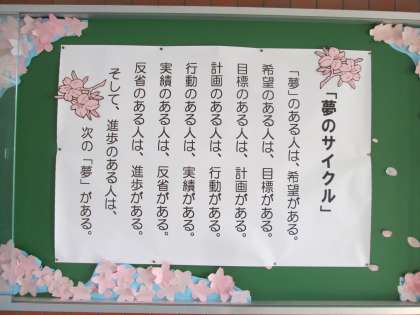 「夢のサイクル」
「夢」のある人は、希望がある。
希望のある人は、目標がある。
目標のある人は、計画がある。
計画のある人は、行動がある。
行動のある人は、実績がある。
実績のある人は、反省がある。
反省のある人は、進歩がある。
そして、進歩のある人は、
次の「夢」がある。